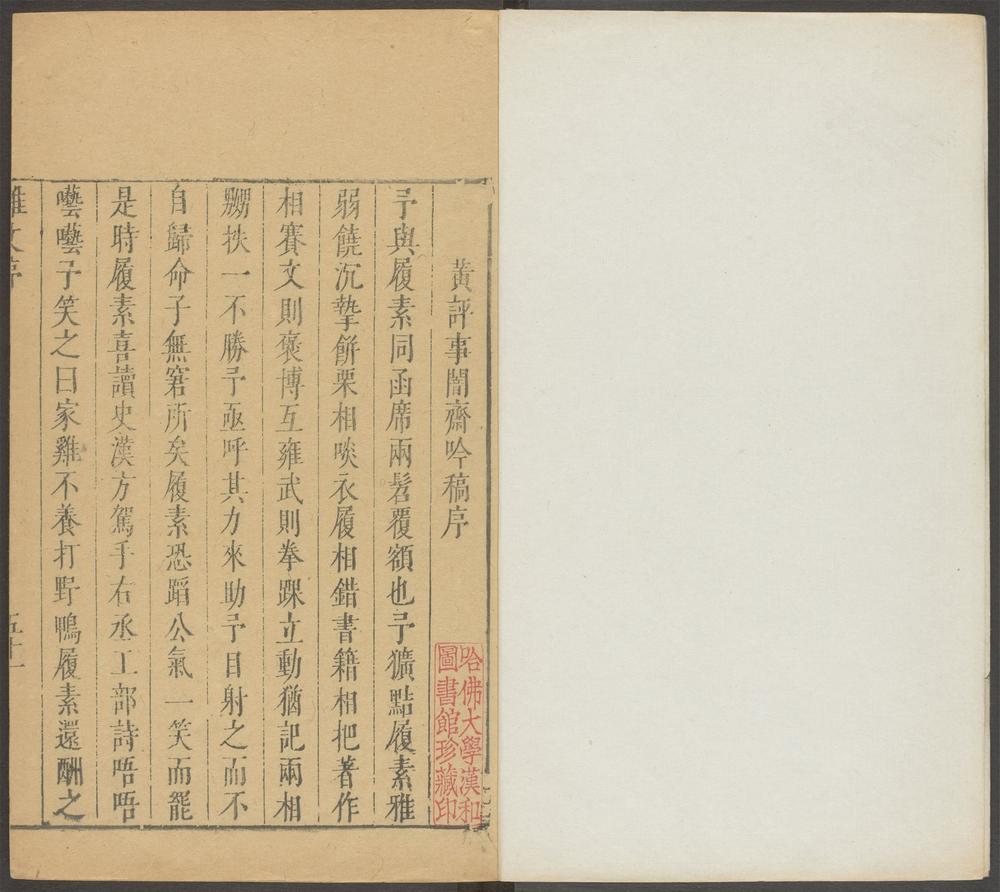 黃評事闇齋吟稿序
予與履素同函席兩髫覆額也予獷黠履素雅
弱饒沉摯餅栗相啖衣履相錯書籍相把著作
相賽文則褒博互雍武則拳踝立動猶記兩相
嬲抶一不勝予亟呼其力來助予目射之而不
自歸命子無窘所矣履素恐蹈公氣一笑而罷
是時履素喜讀史漢方駕手右丞工部詩唔唔
囈囈予笑之曰家雞不養打野鴨履素還酬之
雜文序
五十一
哈佛大學漢和
圖書館珍藏印